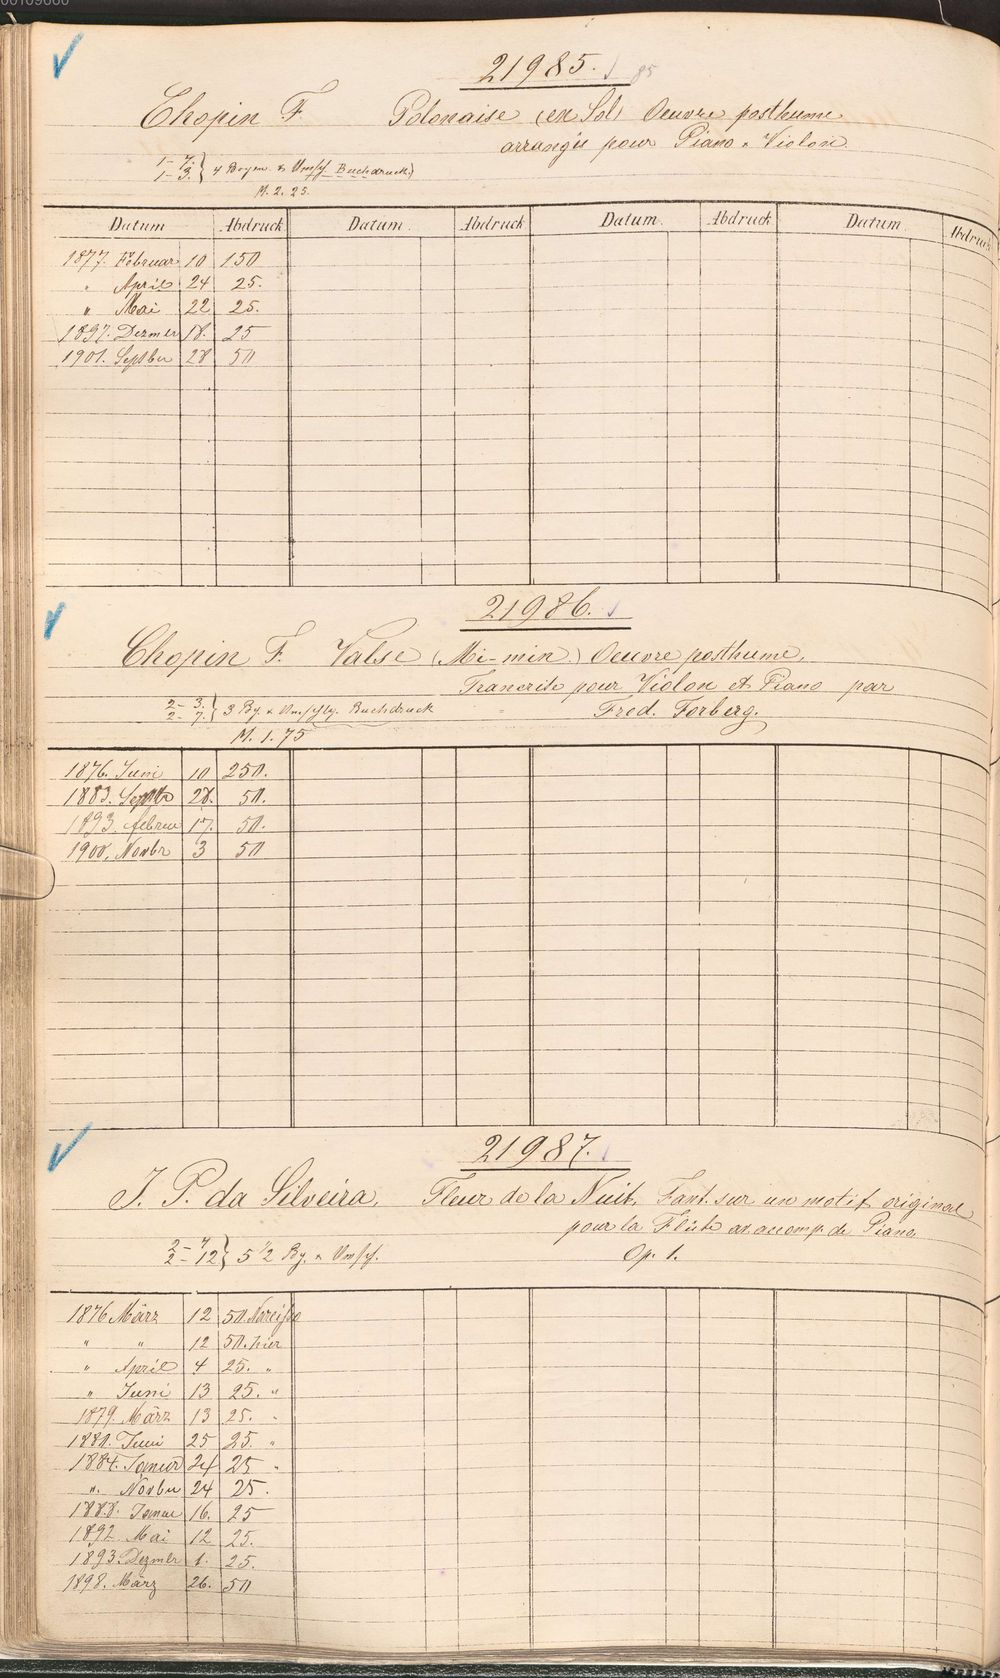 00109660
21985. 85
Chopin F. Polonaise (en Sol) Oeuvre posthume
arrangée pour Piano & Violon
1-7.
1-3. } 4 Bogen & Umschl Buchdruck)
M. 2. 25.
Datum Abdruck Datum. Abdruck Datum. Abdruck Datum Abdruck
1877. Februar 10 150
" April 24 25.
" Mai 22 25.
1897. Dezmbr 18. 25
1901. Septber 28 50
21986.
Chopin F. Valse (Mi-min.) Oeuvre posthume,
Trancrite pour Violon et Piano par
2-3.
2-7. } 3 Bg. & Umschlg. Buchdruck Fred. Forberg.
M. 1. 75
1876. Juni 10 250.
1883. Septbr 28. 50.
1893. Februa 17. 50.
1900. Novbr 3 50
21987.
J. P. da Silveira, Fleur de la Nuit, Fant. sur un motif original
pour la Flûte av. accomp. de Piano
2-7
2-12 } 5 1/2 Bg. & Umschl. Op. 1.
1876 März 12 50.
" " 12 50. hier
" April 4 25. "
" Juni 13 25. "
1879. März 13 25. "
1881. Juni 25 25. "
1884. Januar 24 25 "
". Novber 24 25.
1888. Januar 16. 25
1892 Mai 12 25.
1893. Dezmbr 1. 25.
1898. März 26. 50